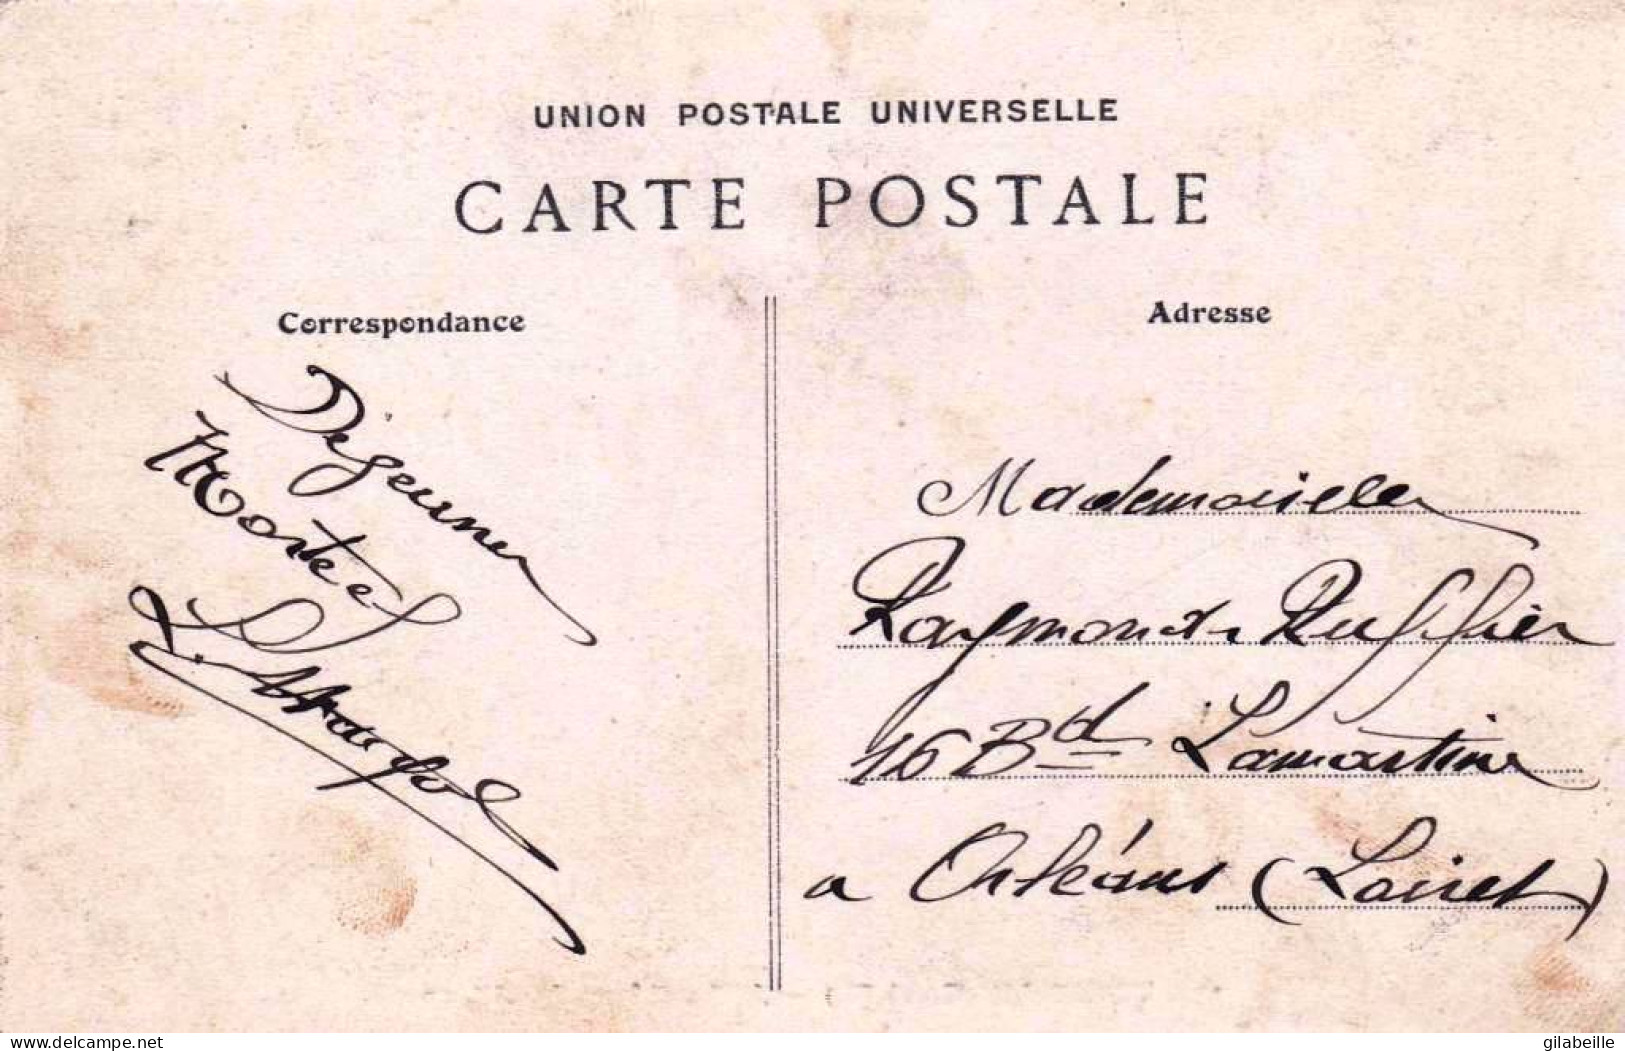 UNION POSTALE UNIVERSELLE
CARTE POSTALE
Correspondance
Déjeuner
Adresse
Mademoiselle
Raymonde Ruffier
16 Bd Lamartine
a Orléans (Loiret)
www.delcampe.net
gilabeille